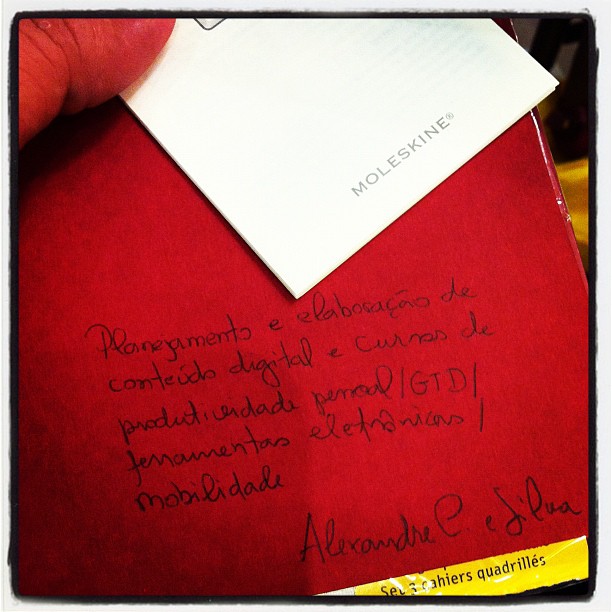 MOLESKINE®
Planejamento e elaboração de
conteúdo digital e cursos de
produtividade pessoal/GTD/
ferramentas eletrônicas/
mobilidade
Alexandre C. e Silva
Set 3 cahiers quadrillés